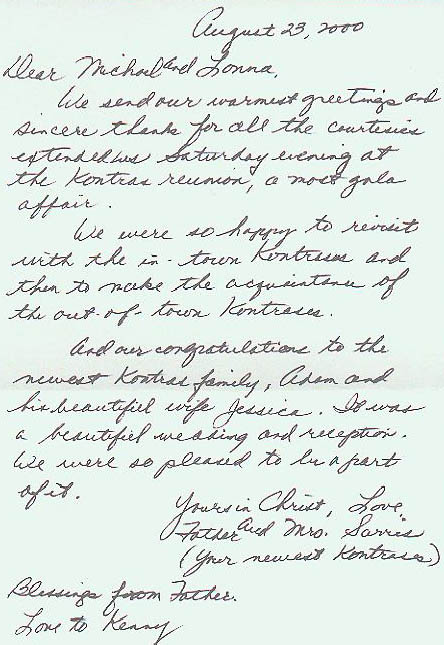 August 23, 2000
Dear Michael and Lonna,
We send our warmest greetings and
sincere thanks for all the courtesies
extended us Saturday evening at
the Kontras reunion, a most gala
affair.
We were so happy to revisit
with the in-town Kontrases and
then to make the acquaintance of
the out-of-town Kontrases.
And our congratulations to the
newest Kontras family, Adam and
his beautiful wife Jessica. It was
a beautiful wedding and reception.
We were so pleased to be a part
of it.
Yours in Christ, Love,
Father and Mrs. Sarris
(Your newest Kontrases)
Blessings from Father.
Love to Kenny